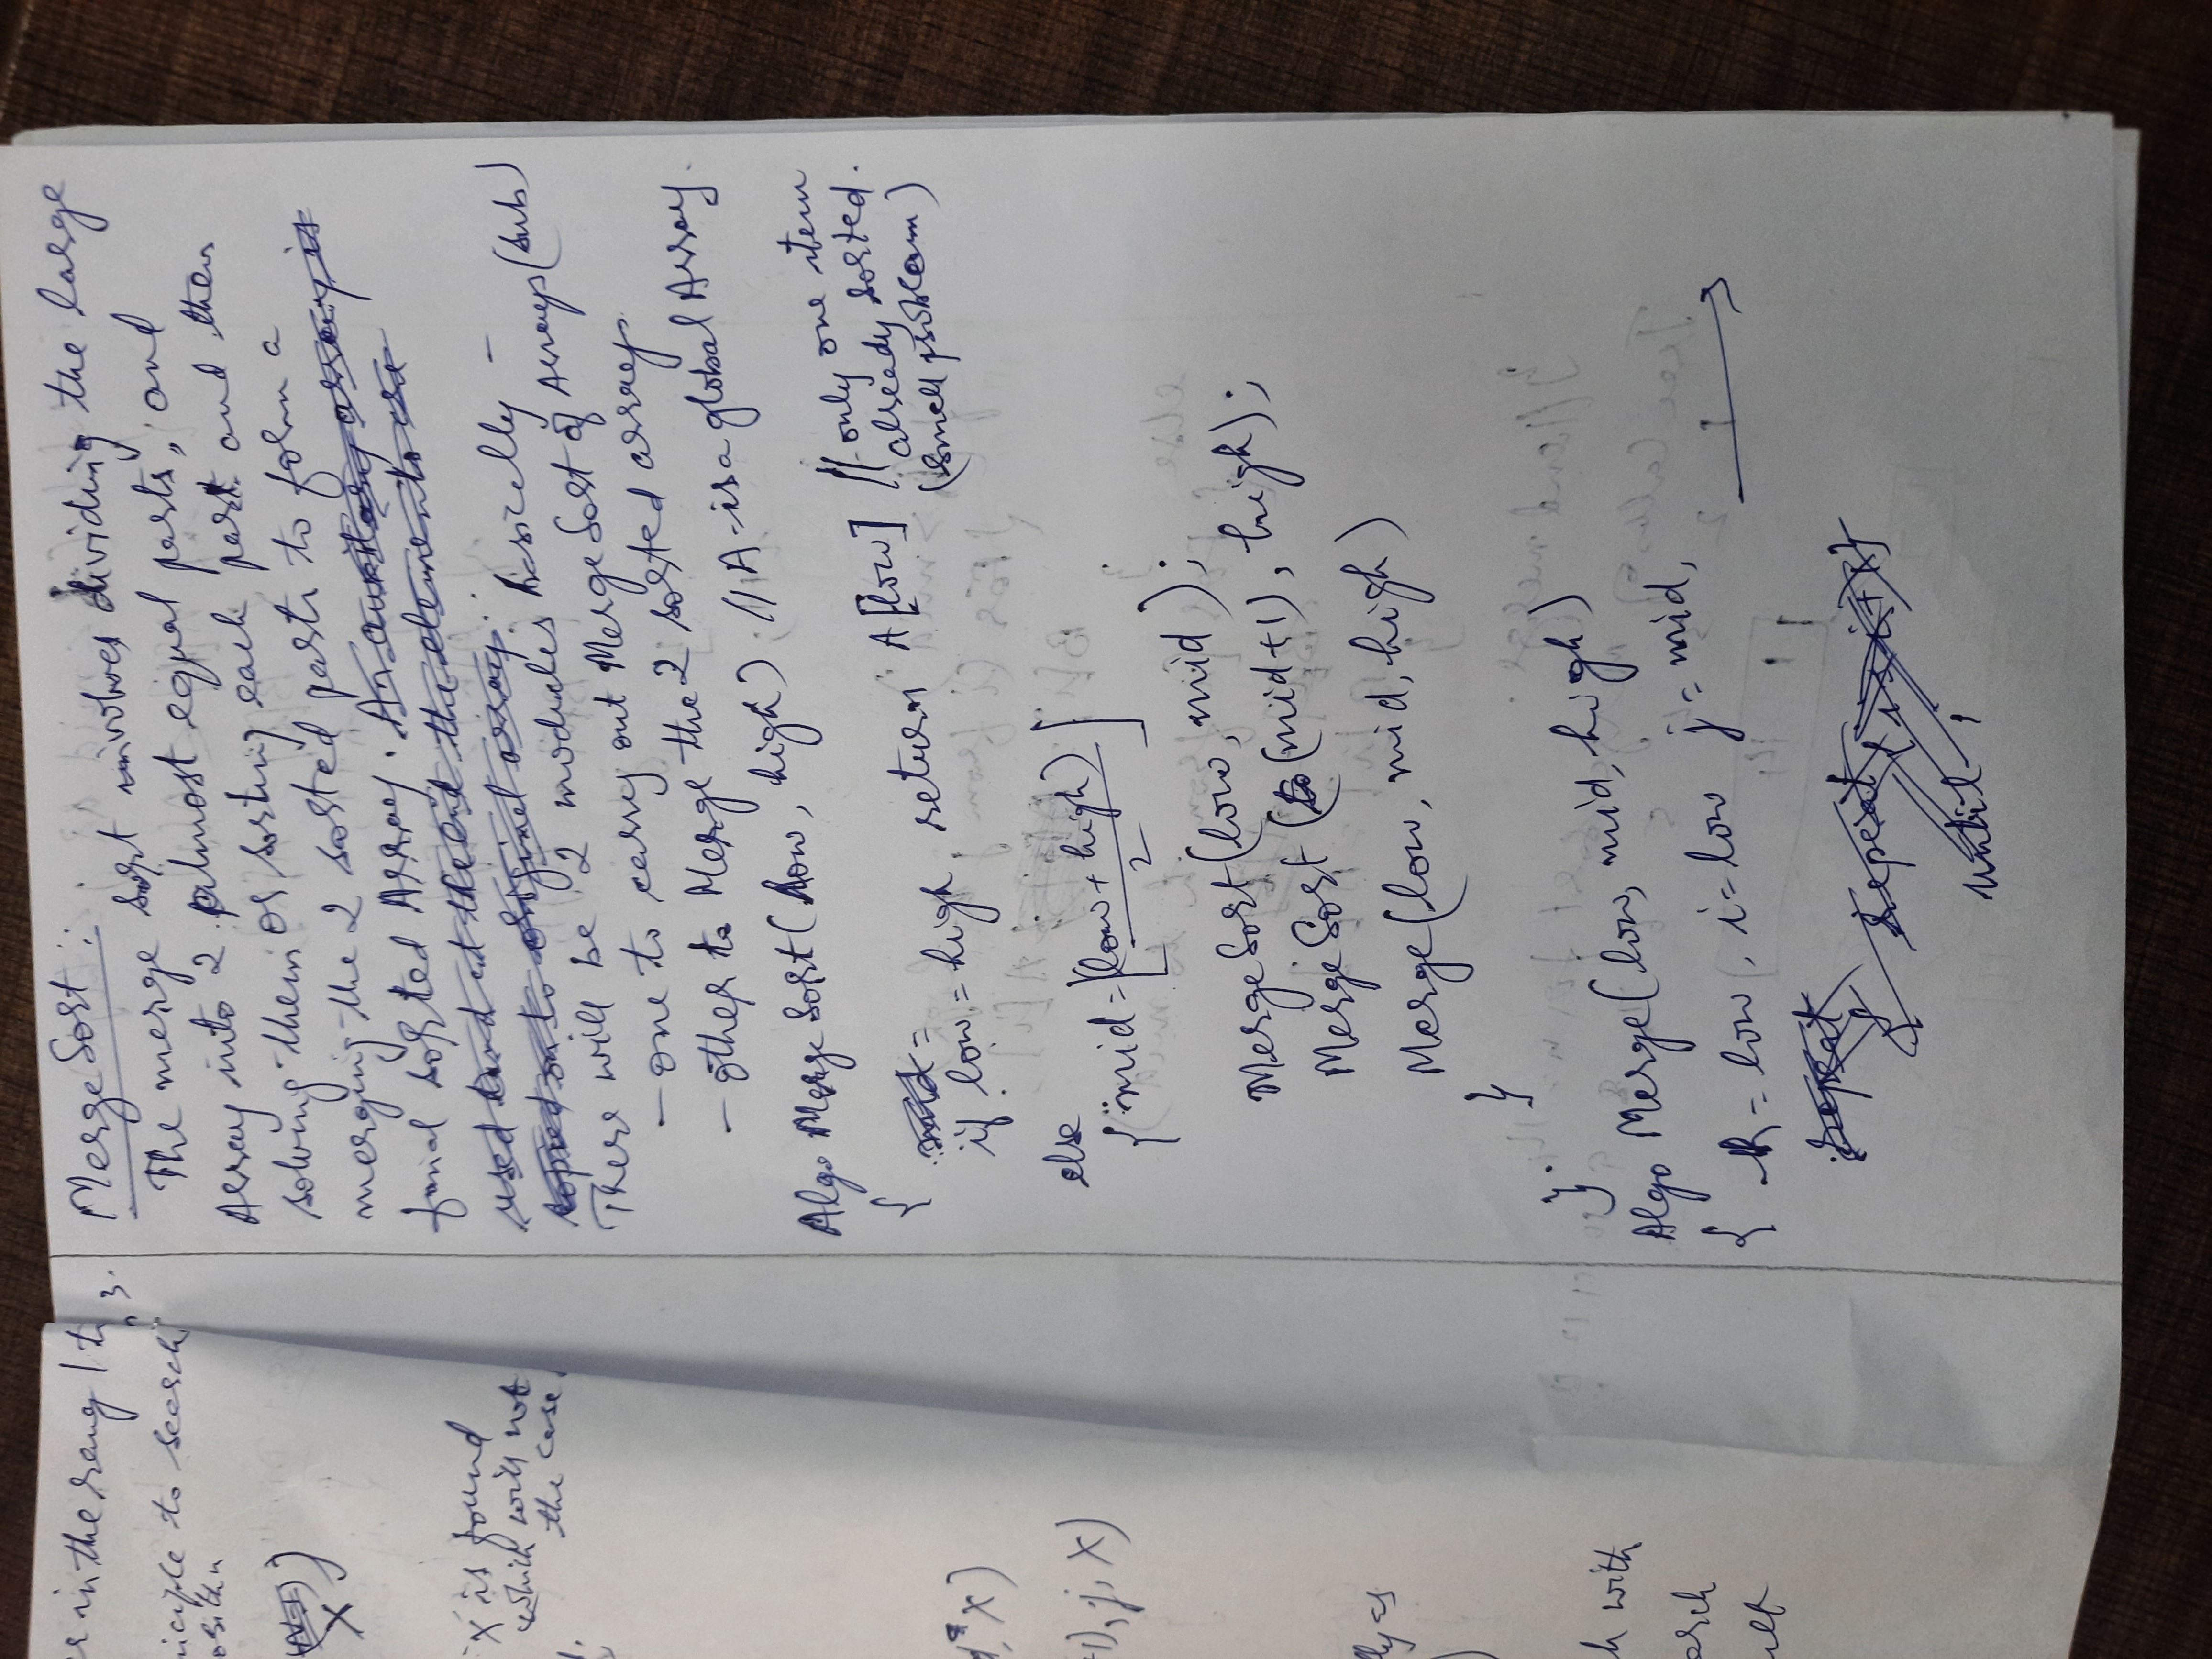 er in the rang 1 to
nciple to search
X
X is found
which will not
the case.
X)
+1), j, X)
lly as
h with
arch
3.
MergeSort :
The merge sort involves dividing the large
Array into 2 almost equal parts, and
solving them or sorting each part and then
merging the 2 sorted parts to form a
final sorted Array. An auxitary array is
used and at the end the elements are
copied on to original array.
There will be 2 modules basically -
- one to carry out MergeSort of Arrays (sub)
- other to Merge the 2 sorted arrays
Algo MergeSort(low, high) // A - is a global Array.
{ mid =
if low = high return A[low] // only one item
already sorted.
(small problem)
else
{ mid = [(low + high) / 2]
MergeSort(low, mid);
MergeSort((mid+1), high);
Merge(low, mid, high)
}
}.
Algo Merge(low, mid, high)
{ k = low, i = low j = mid, →
repeat
{ repeat { i = i+1 }
until i